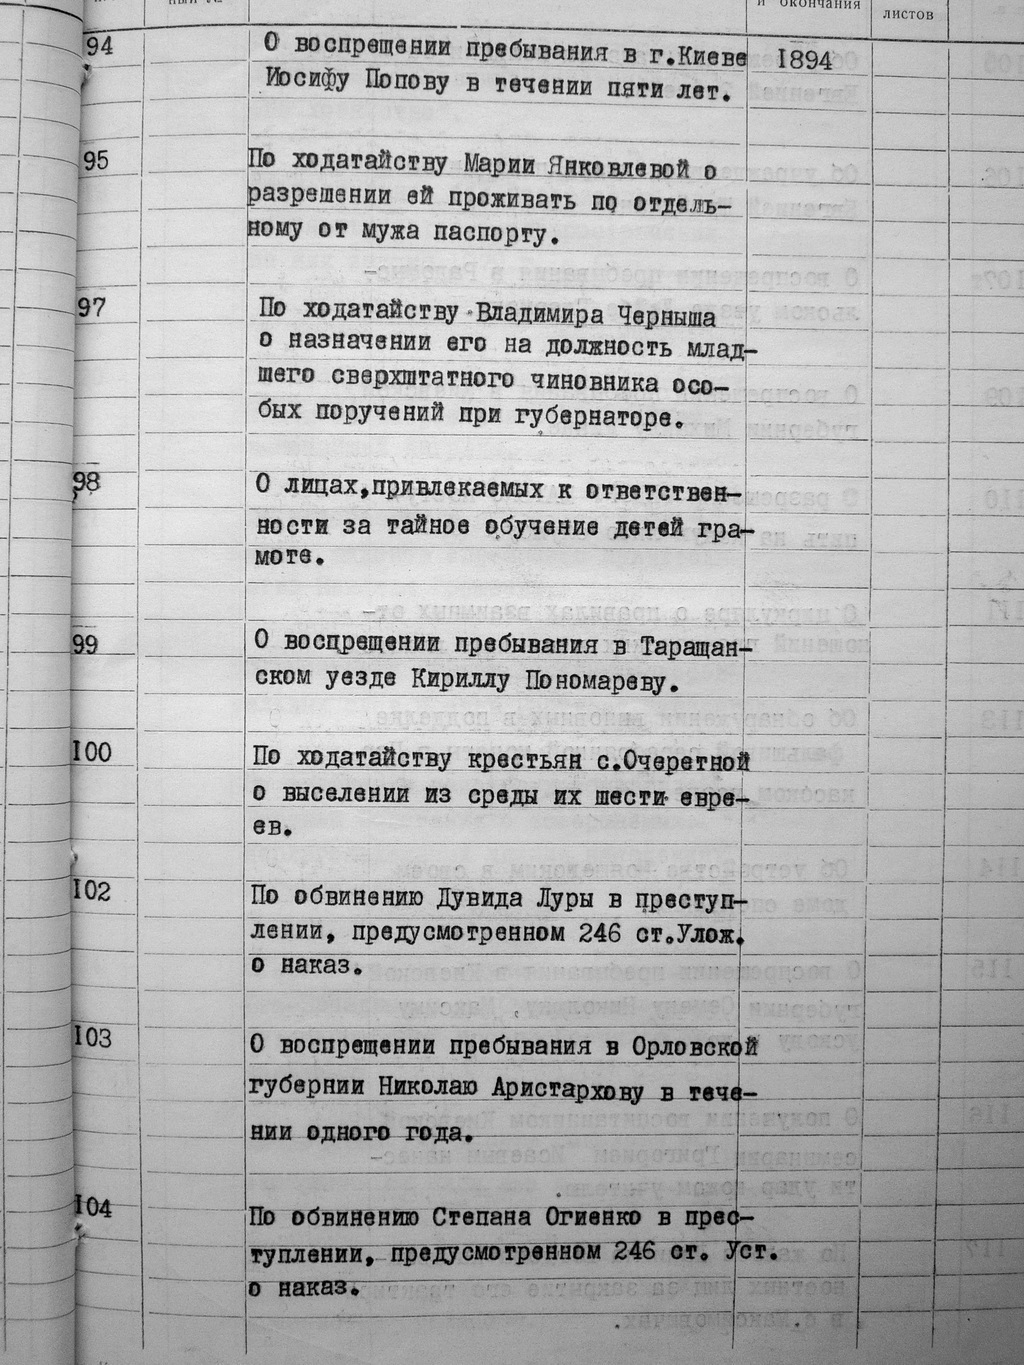 и окончания
листов
94 О воспрещении пребывания в г.Киеве 1894
Иосифу Попову в течении пяти лет.
95 По ходатайству Марии Янковлевой о
разрешении ей проживать по отдель-
ному от мужа паспорту.
97 По ходатайству Владимира Черныша
о назначении его на должность млад-
шего сверхштатного чиновника осо-
бых поручений при губернаторе.
98 О лицах,привлекаемых к ответствен-
ности за тайное обучение детей гра-
моте.
99 О воспрещении пребывания в Таращан-
ском уезде Кириллу Пономареву.
I00 По ходатайству крестьян с.Очеретной
о выселении из среды их шести евре-
ев.
I02 По обвинению Дувида Луры в преступ-
лении, предусмотренном 246 ст.Улож.
о наказ.
I03 О воспрещении пребывания в Орловской
губернии Николаю Аристархову в тече-
нии одного года.
I04 По обвинению Степана Огиенко в прес-
туплении, предусмотренном 246 ст. Уст.
о наказ.